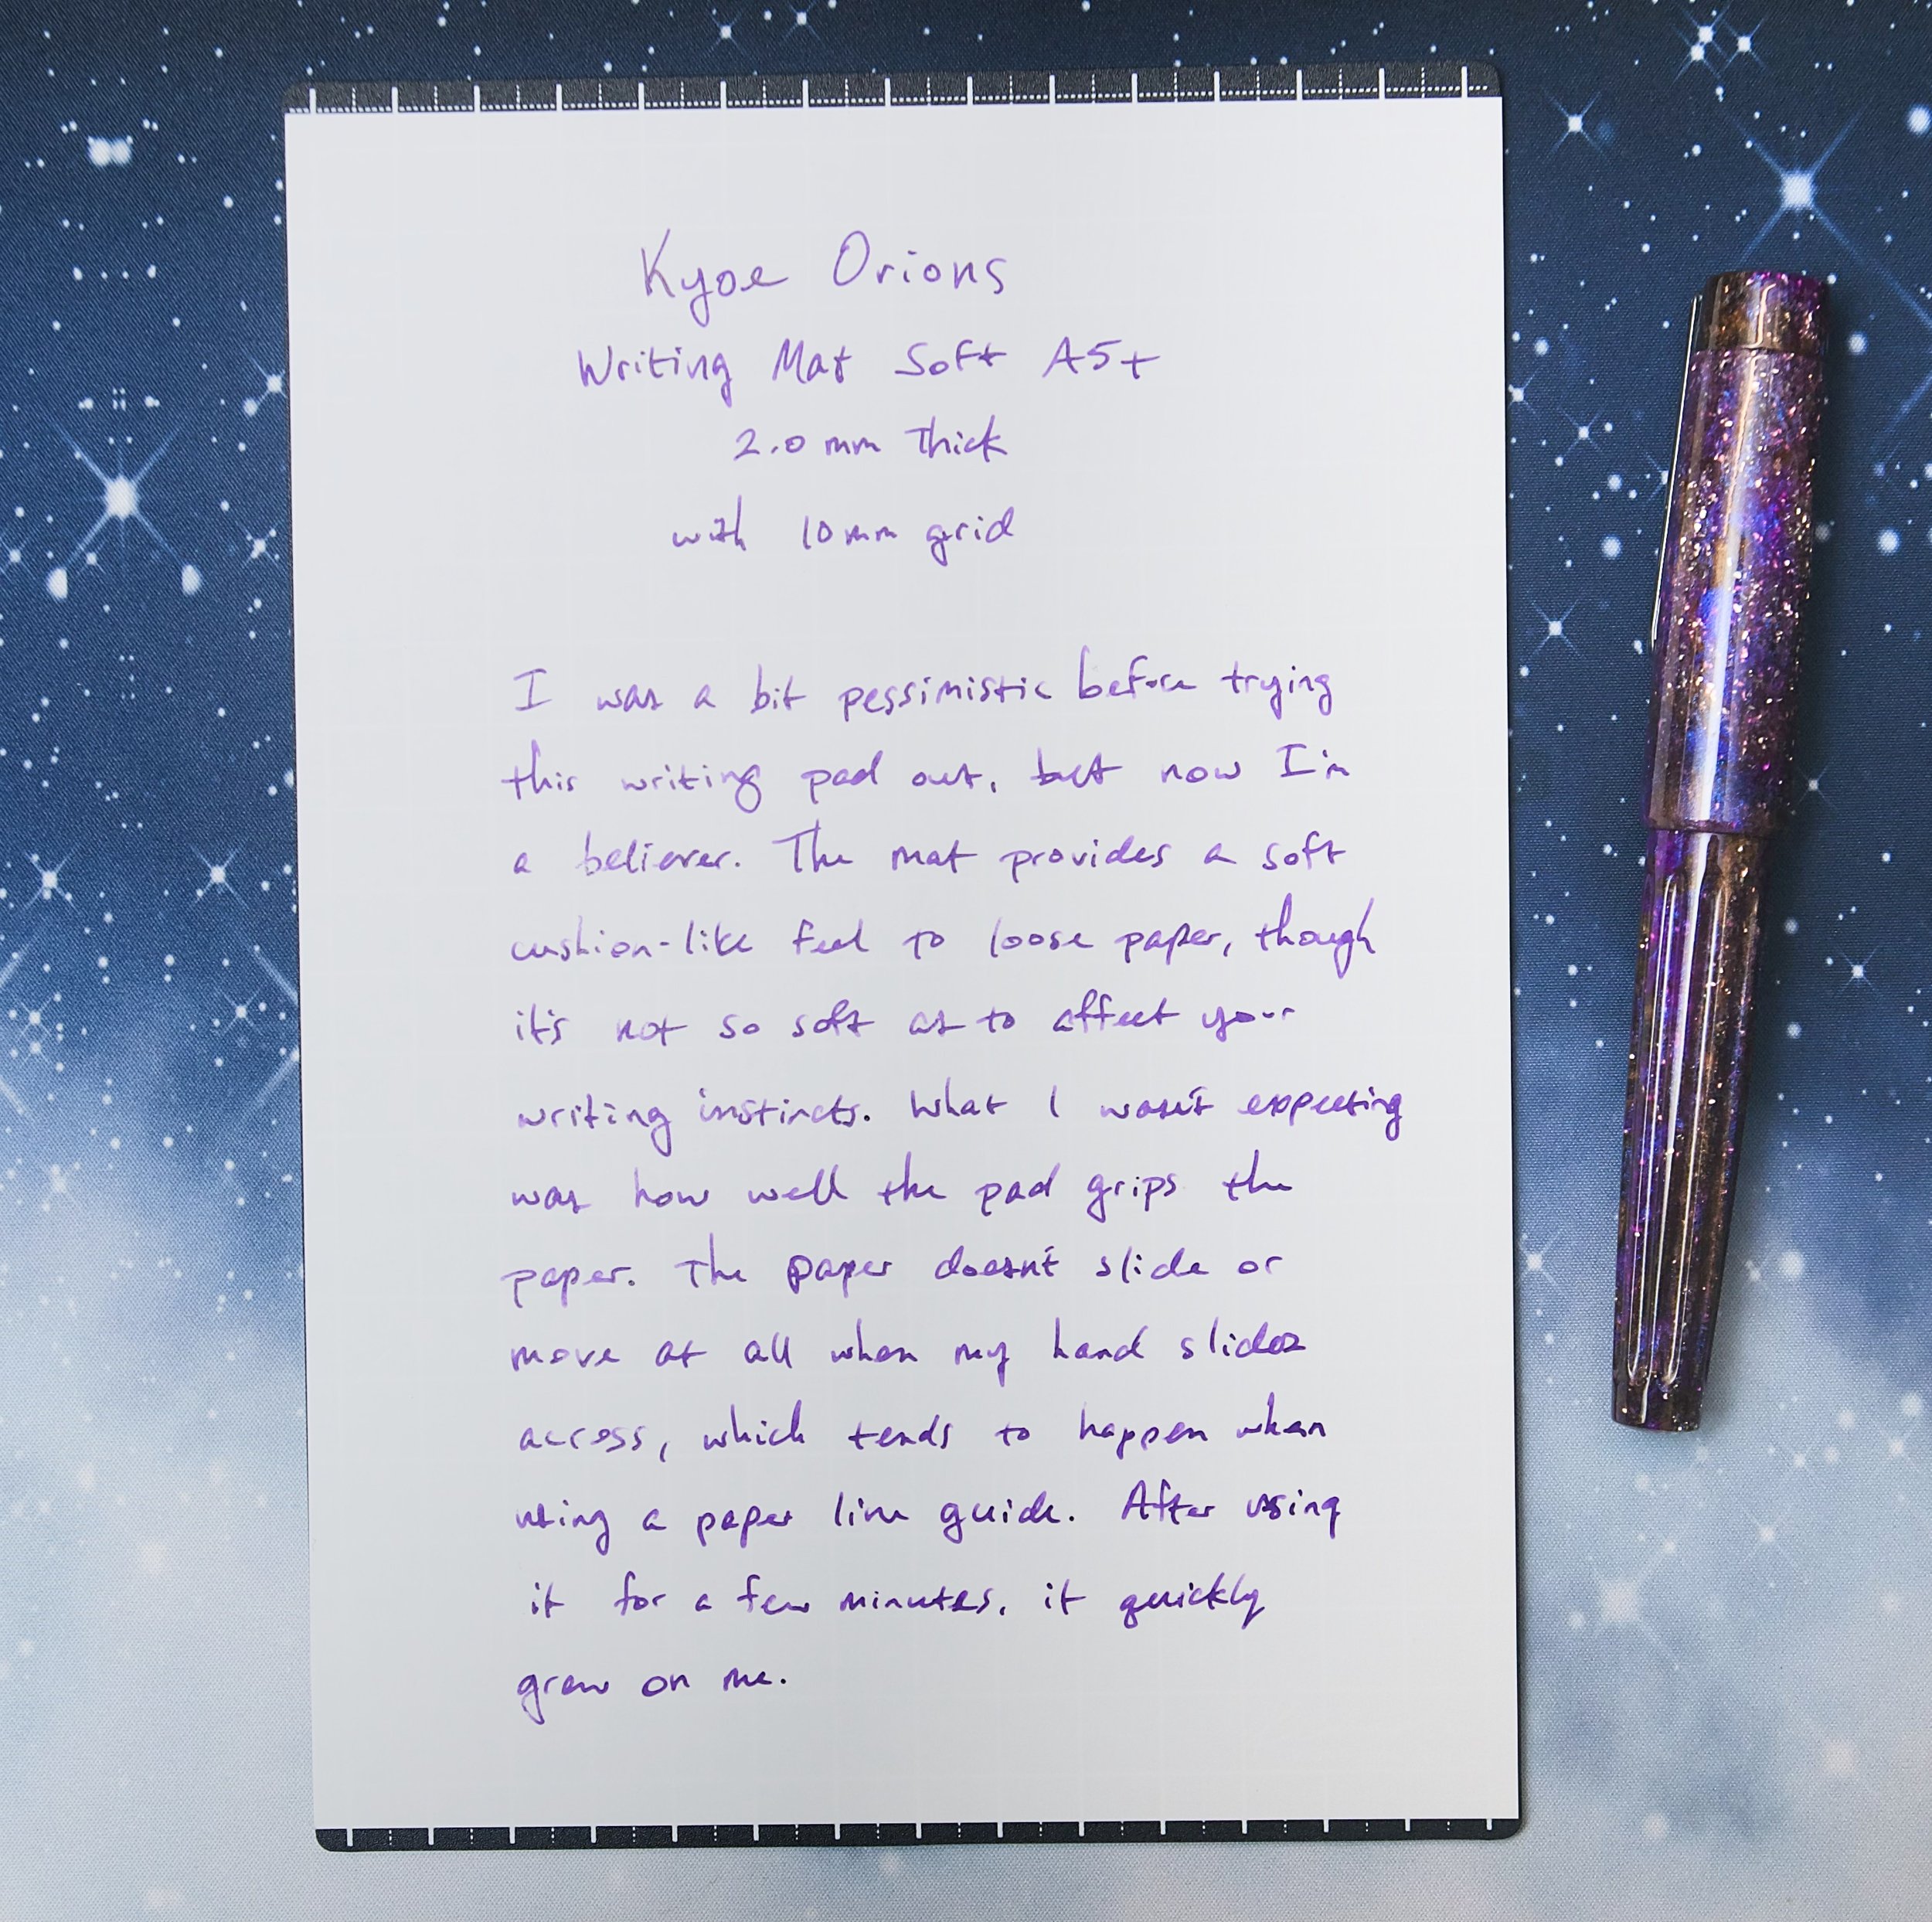 Kyoe Orions
Writing Mat Soft A5+
2.0 mm Thick
with 10mm grid
I was a bit pessimistic before trying
this writing pad out, but now I'm
a believer. The mat provides a soft
cushion-like feel to loose paper, though
it's not so soft as to affect your
writing instincts. What I wasn't expecting
was how well the pad grips the
paper. The paper doesn't slide or
move at all when my hand slides
across, which tends to happen when
using a paper line guide. After using
it for a few minutes, it quickly
grew on me.